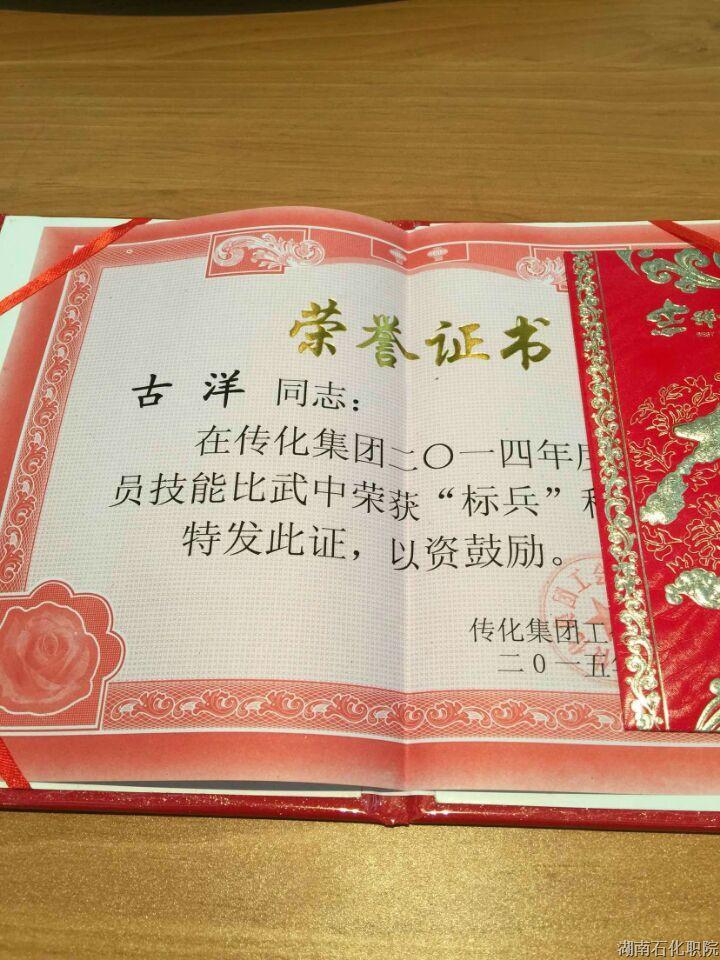 荣誉证书
古洋 同志：
在传化集团二〇一四年度
员技能比武中荣获“标兵”称
特发此证，以资鼓励。
传化集团工
二0一五
湖南石化职院